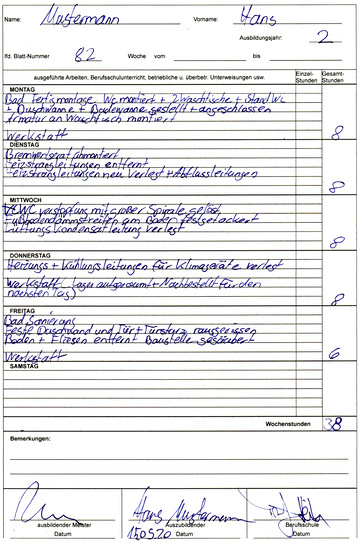 Name: Mustermann Vorname: Hans
Ausbildungsjahr: 2
lfd. Blatt-Nummer 82 Woche vom bis
ausgeführte Arbeiten, Berufsschulunterricht, betriebliche u. überbetr. Unterweisungen usw. Einzel-Stunden Gesamt-Stunden
MONTAG
Bad Fertigmontage, Wc montiert + 2 Waschtische + Stand Wc
+ Duschwanne + Badewanne gestellt + angeschlossen
Armatur an Waschtisch montiert
Werkstatt 8
DIENSTAG
Brennwertgerät abmontiert
Heizstrangleitungen entfernt
Heizstrangleitungen neu verlegt + Abflussleitungen
8
MITTWOCH
WC verstopfung mit großer Spirale gelöst
Fußbodendämmstreifen am Boden festgetackert
Lüftungs Kondensatleitung verlegt
8
DONNERSTAG
Heizungs + Kühlungsleitungen für Klimageräte verlegt
Werkstatt (Lager aufgeräumt + Nachbestellt für den
nächsten Tag) 8
FREITAG
Bad Sanierung
Feste Duschwand und Tür + Türstürz rausgerissen
Boden + Fliesen entfernt Baustelle gesäubert
Werkstatt 6
SAMSTAG
Wochenstunden 38
Bemerkungen:
Hans Mustermann
ausbildender Meister Auszubildender Berufsschule
Datum 15.05.20 Datum Datum